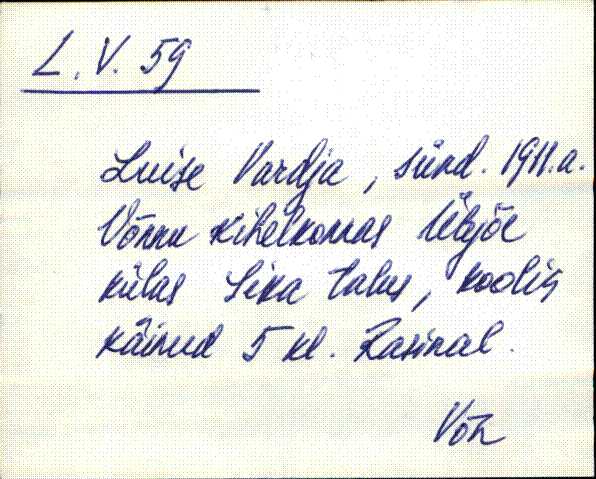 L. V. 59
Luise Vardja, sünd. 1911.a.
Võnnu kihelkonnas
külas Sika talus, koolis
käinud 5 kl. Rasinal.
Võn